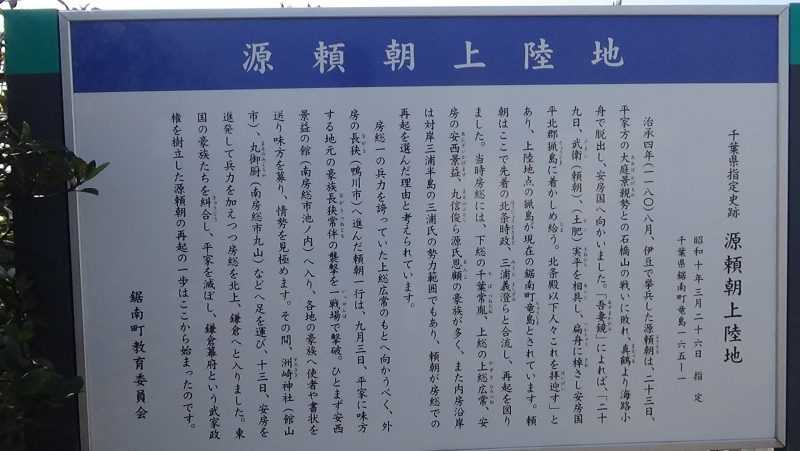 源頼朝上陸地
千葉県指定史跡　源頼朝上陸地
昭和十年三月二十六日　指定
千葉県鋸南町竜島一六五ー一
治承四年(一一八〇)八月、伊豆で挙兵した源頼朝は、二十三日、
平家方の大庭景親勢との石橋山の戦いに敗れ、真鶴より海路小
舟で脱出し、安房国へ向かいました。「吾妻鏡」によれば、「二十
九日、武衛(頼朝)、(土肥)実平を相具し、扁舟に棹さし安房国
平北郡猟島に着かしめ給う。北条殿以下人々これを拝迎す」と
あり、上陸地点の猟島が現在の鋸南町竜島とされています。頼
朝はここで先着の北条時政、三浦義澄らと合流し、再起を図り
ました。当時房総には、下総の千葉常胤、上総の上総広常、安
房の安西景益、丸信俊ら源氏恩顧の豪族が多く、また内房沿岸
は対岸三浦半島の三浦氏の勢力範囲でもあり、頼朝が房総での
再起を選んだ理由と考えられています。
房総一の兵力を誇っていた上総広常のもとへ向かうべく、外
房の長狭(鴨川市)へ進んだ頼朝一行は、九月三日、平家に味方
する地元の豪族長狭常伴の襲撃を一戦場で撃破。ひとまず安西
景益の館(南房総市池ノ内)へ入り、各地の豪族へ使者や書状を
送り味方を募り、情勢を見極めます。その間、洲崎神社(館山
市)、丸御厨(南房総市丸山)などへ足を運び、十三日、安房を
進発して兵力を加えつつ房総を北上、鎌倉へと入りました。東
国の豪族たちを糾合し、平家を滅ぼし、鎌倉幕府という武家政
権を樹立した源頼朝の再起の一歩はここから始まったのです。
鋸南町教育委員会